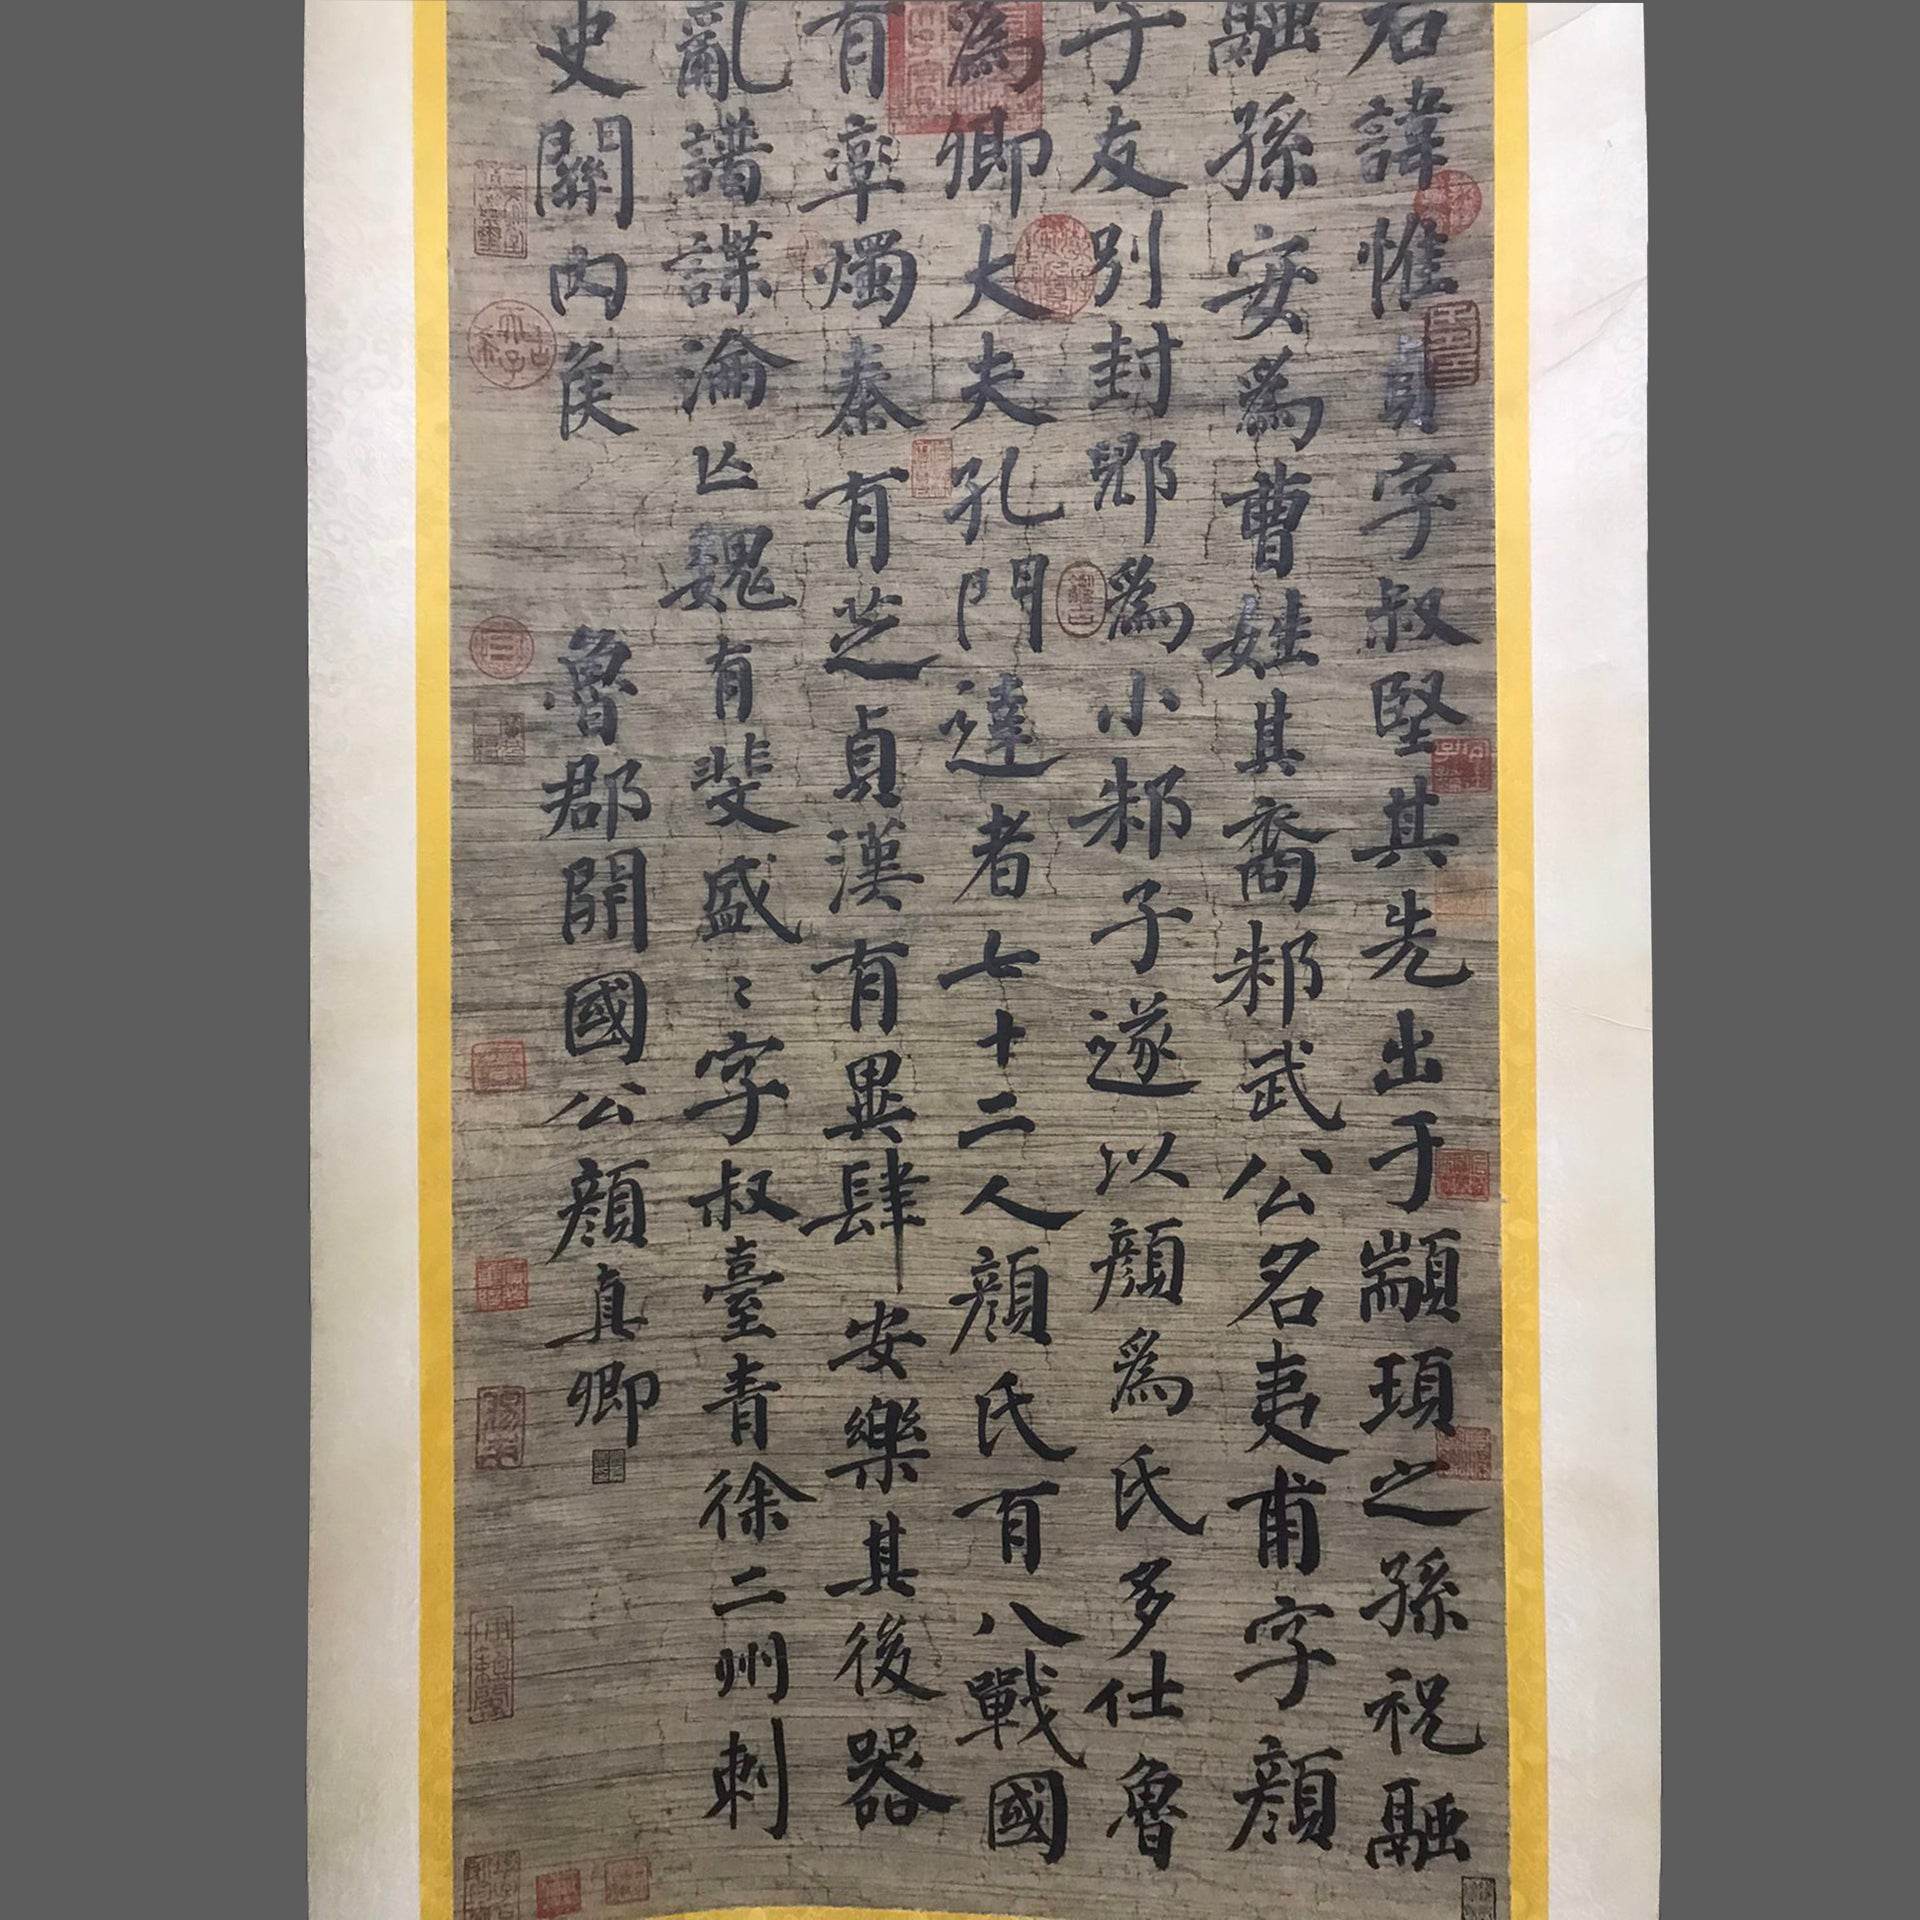 君諱惟貞字叔堅其先出于顓頊之孫祝融
融孫安爲曹姓其裔邾武公名夷甫字顏
子友別封郳爲小邾子遂以顏爲氏多仕魯
爲卿大夫孔門達者七十二人顏氏有八戰國
有率燭秦有芝貞漢有異肆安樂其後器
亂譜諜淪亡魏有斐盛〻字叔臺青徐二州刺
史關內侯
魯郡開國公顏真卿